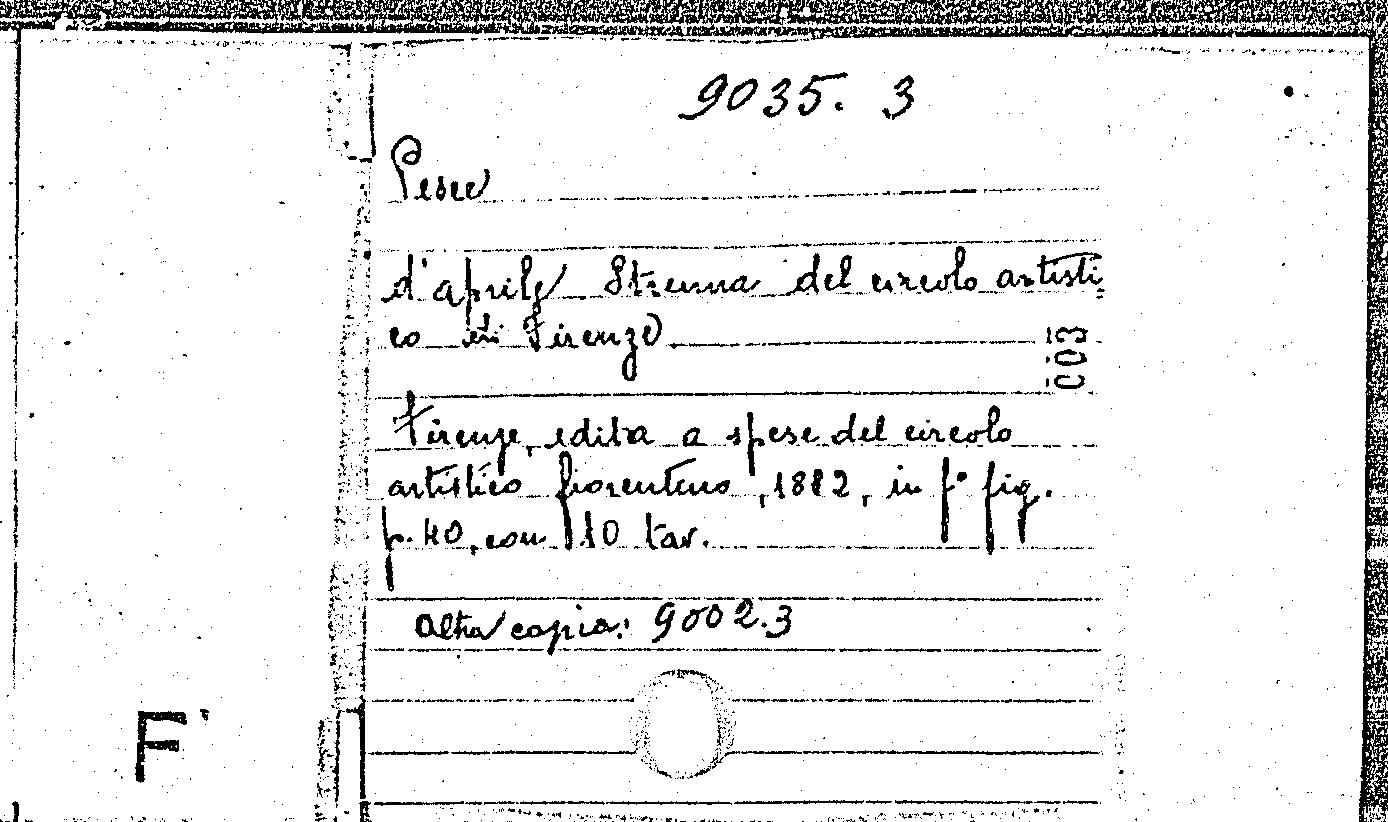 9035. 3
Pesce
d'aprile Strenna del circolo artisti
co di Firenze
003
Firenze, edita a spese del circolo
artistico fiorentino, 1882, in f° fig.
p. 40, con 10 tav.
Altra copia: 9002.3
F